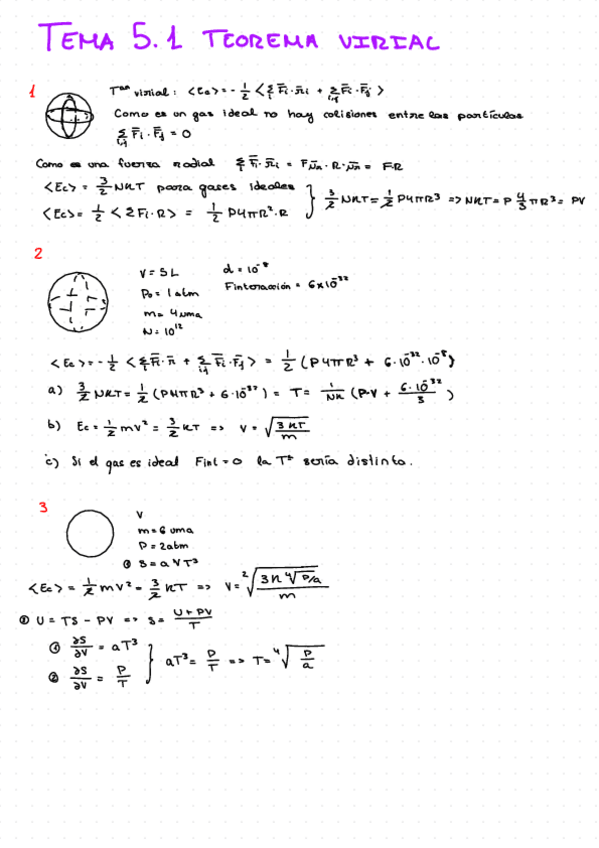 TEMA 5.1 TEOREMA VIRIAL
1
Tma virial: <Ec> = - 1/2 < Σi F̄i · r̄i + Σi,j F̄i · F̄j >
Como es un gas ideal no hay colisiones entre las partículas
Σi,j F̄i · F̄j = 0
Como es una fuerza radial Σi F̄i · r̄i = F ūr · R · ūr = F·R
<Ec> = 3/2 NKT para gases ideales
<Ec> = 1/2 < Σ Fi · R > = 1/2 P4πR² · R
} 3/2 NKT = 1/2 P4πR³ => NKT = P 4/3 πR³ = PV
2
V = 5 L
P₀ = 1 atm
m = 4 uma
N = 10¹²
d = 10⁻⁸
Finteracción = 6x10⁻³²
<Ec> = - 1/2 < Σi F̄i · r̄i + Σi,j F̄i · F̄j > = 1/2 (P4πR³ + 6·10⁻³² · 10⁻⁸)
a) 3/2 NKT = 1/2 (P4πR³ + 6·10⁻³²) = T = 1/NK (P·V + 6·10⁻³²/3)
b) Ec = 1/2 mv² = 3/2 KT => v = √(3KT/m)
c) Si el gas es ideal Fint = 0 la Tª sería distinto.
3
V
m = 6 uma
P = 2 atm
① S = a V T³
<Ec> = 1/2 mv² = 3/2 KT => v = ²√(3K ⁴√(P/a) / m)
② U = TS - PV => S = (U + PV)/T
① ∂S/∂V = aT³
② ∂S/∂V = P/T
} aT³ = P/T => T = ⁴√(P/a)